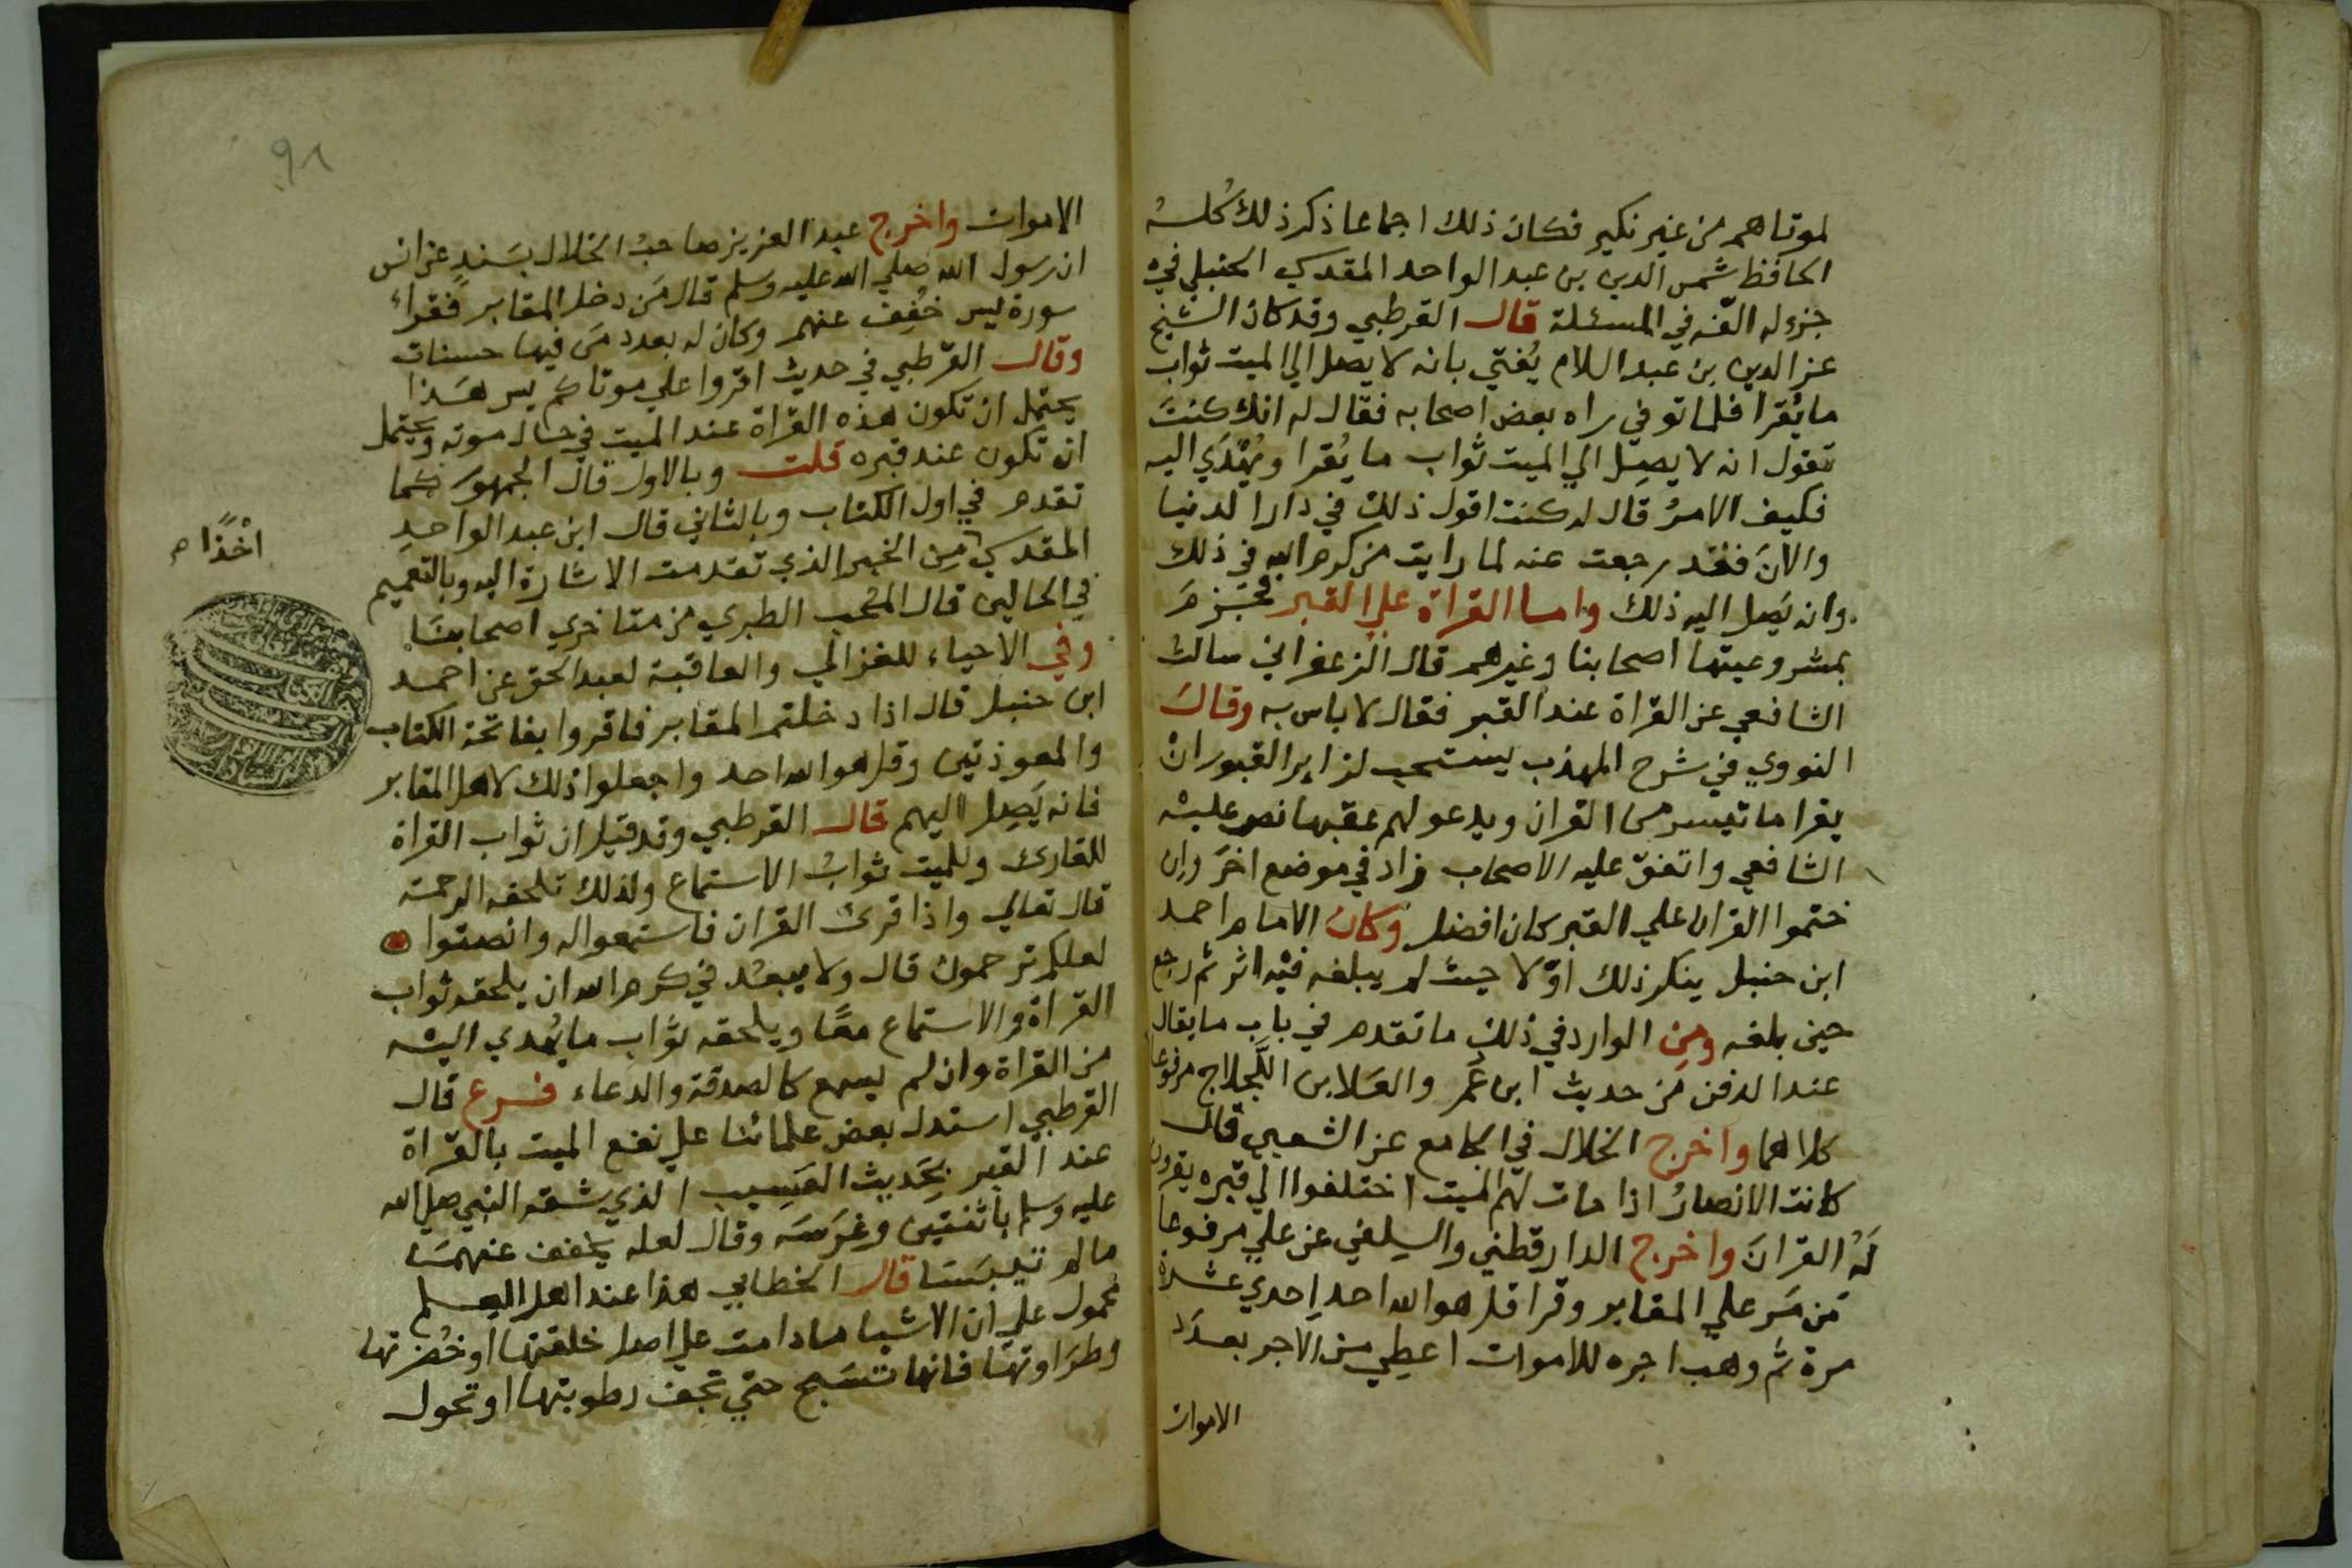 لموتاهم من غير نكير فكان ذلك اجماعا ذكر ذلك كله
الحافظ شمس الدين بن عبد الواحد المقدسي الحنبلي في
جزء له الفه في المسئلة قال القرطبي وقد كان الشيخ
عز الدين بن عبد السلام يُفتي بانه لا يصل الي الميت ثواب
ما يُقرا فلما توفي راه بعض اصحابه فقال له انك كنتَ
تقول انه لا يصِل الي الميت ثواب ما يُقرا ويُهْدَي اليه
فكيف الامرُ قال له كنت اقول ذلك في دار الدنيا
والآنَ فقد رجعت عنه لما رايت من كرم الله في ذلك
وانه يَصل اليه ذلك واما القراة علي القبر فجَزمَ
بمشروعيتها اصحابنا وغيرهم قال الزعفراني سالت
الشافعي عن القراة عند القبر فقال لا باس به وقالَ
النووي في شرح المهذب يستحب لزاير القبور انْ
يقرا ما تيسر من القران ويدعو لهم عقبها نص عليه
الشافعي واتفق عليه الاصحاب زاد في موضع اخَر وان
ختموا القران علي القبر كان افضل وكان الامام احمد
ابن حنبل ينكر ذلك اوّلا حيث لم يبلغه فيه اثر ثم رجع
حين بلغه ومِن الوارد في ذلك ما تقدم في باب ما يقال
عند الدفن من حديث ابن عُمر والعَلا بن اللَّجلاج مرفوعا
كلاهما واخرج الخلال في الجامع عن الشعبي قال
كانت الانصارُ اذا مات لهم الميت اختلفوا الي قبره يقرون
لَهُ القرانَ واخرج الدارقطني والسِلفي عن علي مرفوعا
مَن مَر علي المقابر وقرا قل هو الله احد احدي عشرة
مرة ثم وهب اجره للاموات اعطِي من الاجر بعدَد
الاموات
91
الاموات واخرج عبد العزيز صاحبُ الخلال بسَندٍ عن انس
ان رسول الله صلي الله عليه وسلم قال مَن دخل المقابر فقراء
سورة يس خُفِف عنهم وكان له بعدد مَن فيها حسنات
وقال القرطبي في حديث اقروا علي موتاكم يس هَذا
يحتمل ان تكون هذه القراة عند الميت في حال موته ويحتمل
ان تكون عند قبره قلت وبالاول قال الجمهور كما
تقدم في اول الكتاب وبالثاني قال ابن عبد الواحدِ
المقدسي من الخبر الذي تقدمت الاشارة اليه وبالتعميم
اخْذًا م
في الحالين قال المحب الطبري من متاخري اصحابنا
وفي الاحياء للغزالي والعاقبة لعبد الحق عن احمد
ابن حنبل قال اذا دخلتم المقابر فاقروا بفاتحة الكتاب
والمعوذتين وقل هو الله احد واجعلوا ذلك لاهل المقابر
فانه يَصِل اليهم قال القرطبي وقد قيل ان ثواب القراة
للقارئ وللميت ثوابُ الاستماع ولذلك تلحقه الرحمة
قال تعالي واذا قرئ القران فاستمعوا له وانصتوا
لعلكم ترحمون قال ولا يبعُد في كرم الله ان يلحقه ثواب
القراة والاستماع معًا ويلحقه ثواب ما يُهدي اليه
من القراة وان لم يسمع كالصدقة والدعاء فرع قال
القرطبي استدل بعض علمائنا علي نفع الميت بالقراة
عند القبر بِحَديث العَسيب الذي شقه النبي صلي الله
عليه وسلم باثنتين وغرَسَه وقال لعله يخفف عنهمَا
ما لم تيبسَا قال الخطابي هذا عند اهل العلم
محمول علي ان الاشيا ما دامت علي اصل خلقتها او خُضرتها
وطرَاوتها فانها تسَبح حتي تجف رطوبتها او تحول